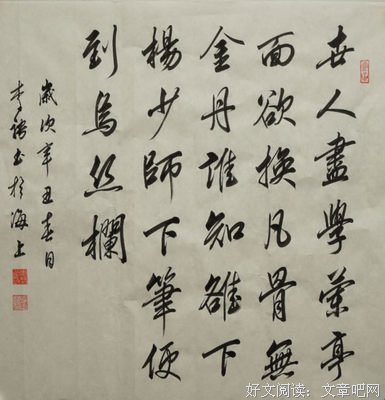 世人盡學蘭亭
面欲換凡骨無
金丹誰知雒下
楊少師下筆便
到烏絲欄
歲次辛丑春日
李书於海上
好文阅读：文章吧网